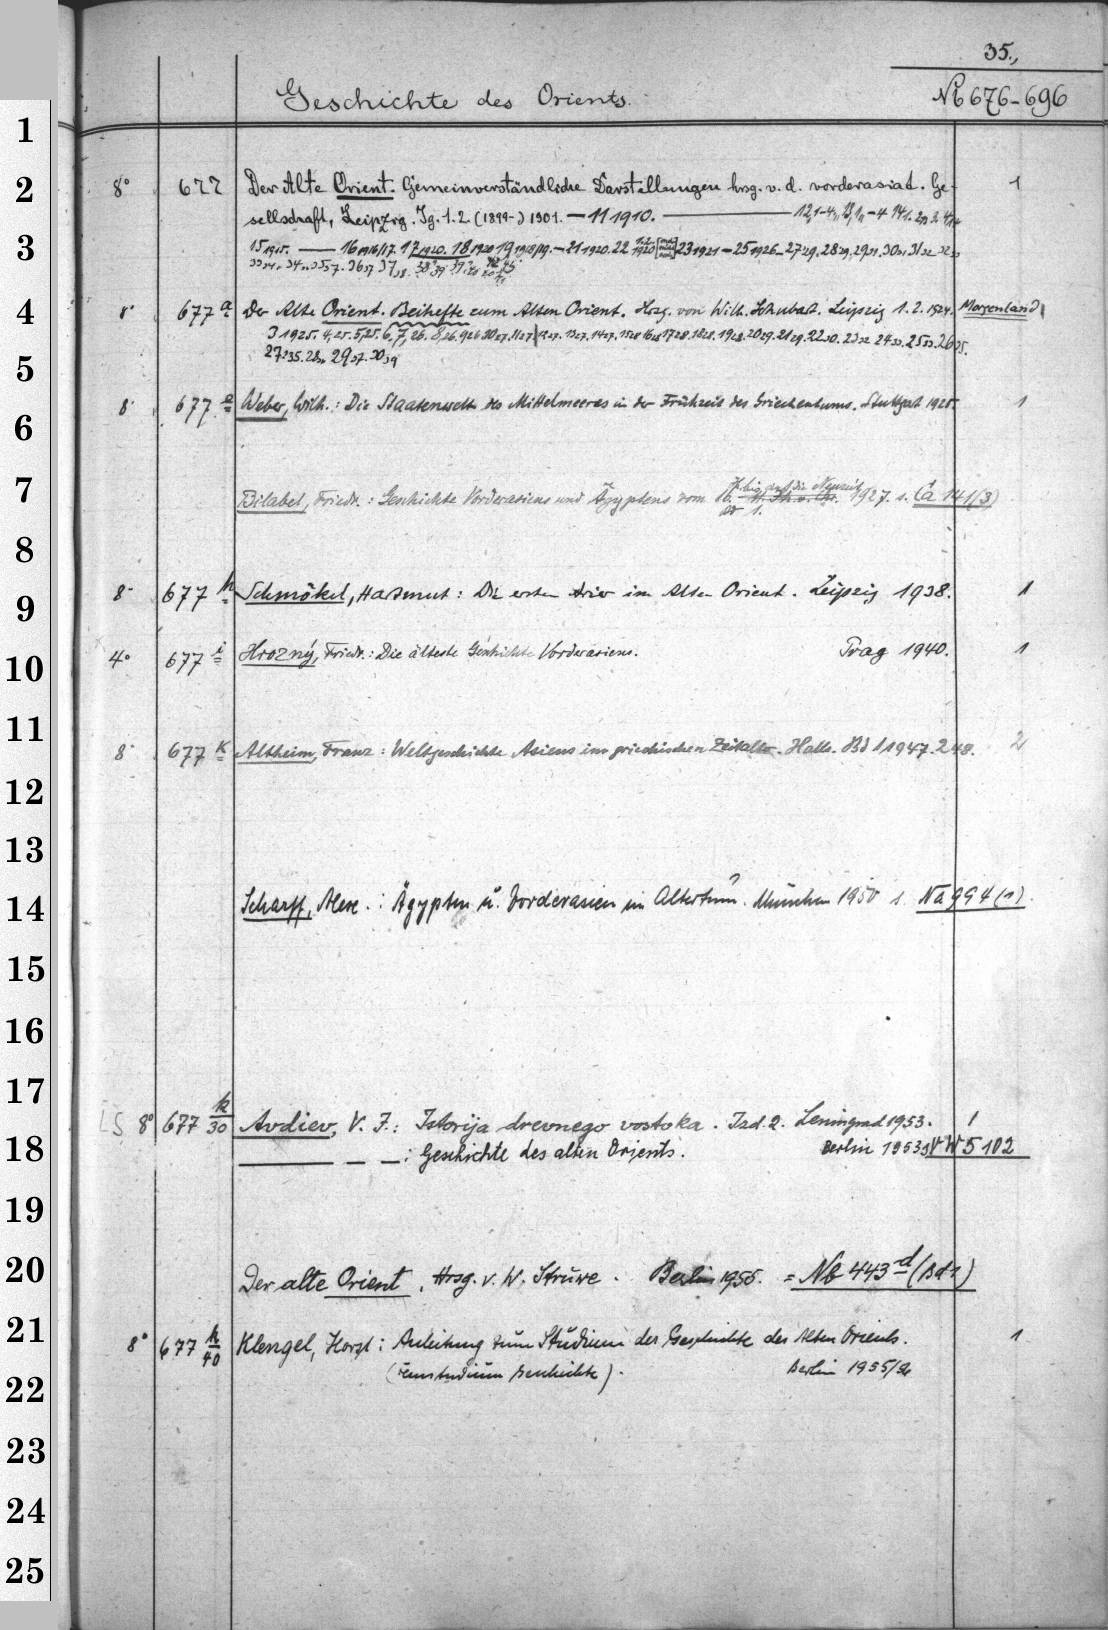 35.,
Geschichte des Orients.
Nb 676-696
1
2
3
4
5
6
7
8
9
10
11
12
13
14
15
16
17
18
19
20
21
22
23
24
25
8° 677 Der Alte Orient. Gemeinverständliche Darstellungen hrsg. v. d. vorderasiat. Ge- 1
sellschaft, Leipzig. Jg. 1.2 (1899-) 1901. — 11 1910. —
15 1915. — 16 1916/17. 17 1920. 18 1920 19 1918/19. — 21 1920. 22 1920 23 1921 — 25 1926 — 27 29. 28 29.
8° 677 a Der Alte Orient. Beihefte zum Alten Orient. Hrsg. von Wilh. Schubart. Leipzig 1. 2. 1924. Morgenland 1
3 1925. 4, 25. 5, 25. 6, 7, 26. 8, 26. 9 26
27 35. 28 29 37. 30 39
8° 677 e Weber, Wilh.: Die Staatenwelt des Mittelmeeres in der Frühzeit des Griechentums. Stuttgart 1925. 1
Bilabel, Friedr.: Geschichte Vorderasiens und Ägyptens vom 16. Jh. bis auf die Neuzeit 1927. s. Ca 141(3)
Bd 1.
8° 677 h Schmökel, Hartmut: Die ersten Arier im Alten Orient. Leipzig 1938. 1
4° 677 i Hrozný, Friedr.: Die älteste Geschichte Vorderasiens. Prag 1940. 1
8° 677 k Altheim, Franz: Weltgeschichte Asiens im griechischen Zeitalter. Halle. Bd 1 1947. 2 48. 2
Scharff, Alex.: Ägypten u. Vorderasien im Altertum. München 1950 s. Na 994 (1)
LS 8° 677 k/30 Avdiev, V. I.: Istorija drevnego vostoka. Izd. 2. Leningrad 1953. 1
— — —: Geschichte des alten Orients. Berlin 1953 s VW 5102
Der alte Orient. Hrsg. v. W. Struwe. Berlin 1955. = Nb 443 d (Bd 1)
8° 677 k/40 Klengel, Horst: Anleitung zum Studium der Geschichte des Alten Orients. 1
(Fernstudium Geschichte). Berlin 1955/56